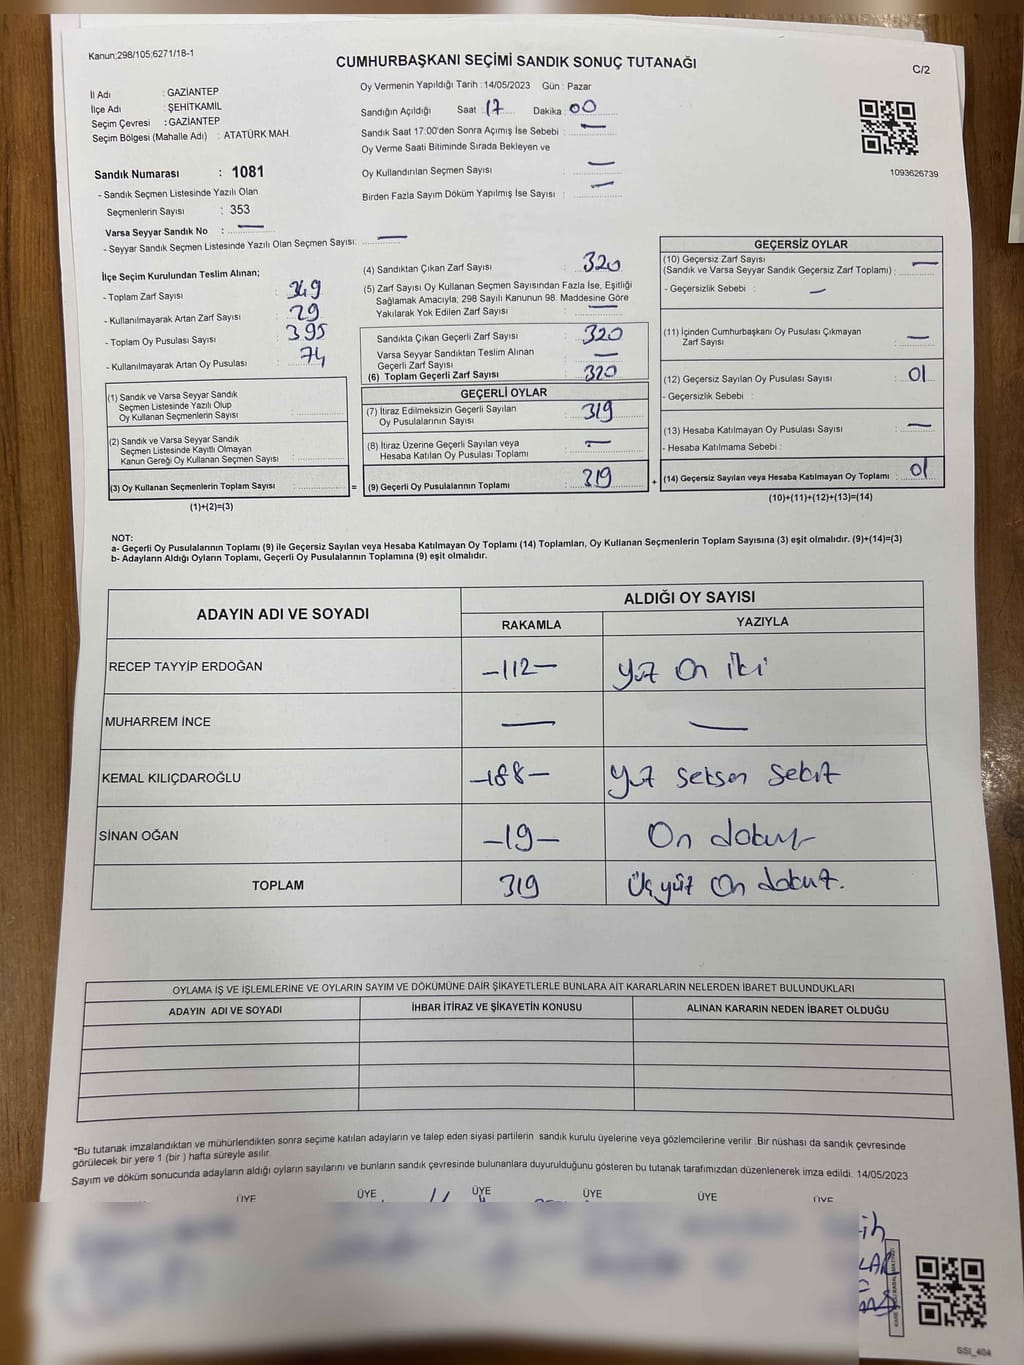 Kanun;298/105;6271/18-1
CUMHURBAŞKANI SEÇİMİ SANDIK SONUÇ TUTANAĞI
C/2
İl Adı : GAZİANTEP
İlçe Adı : ŞEHİTKAMİL
Seçim Çevresi : GAZİANTEP
Seçim Bölgesi (Mahalle Adı) : ATATÜRK MAH.
Sandık Numarası : 1081
- Sandık Seçmen Listesinde Yazılı Olan
Seçmenlerin Sayısı : 353
Varsa Seyyar Sandık No : —
- Seyyar Sandık Seçmen Listesinde Yazılı Olan Seçmen Sayısı: —
Oy Vermenin Yapıldığı Tarih : 14/05/2023 Gün : Pazar
Sandığın Açıldığı Saat : 17 Dakika : 00
Sandık Saat 17:00'den Sonra Açımış İse Sebebi : —
Oy Verme Saati Bitiminde Sırada Bekleyen ve
Oy Kullandırılan Seçmen Sayısı : —
Birden Fazla Sayım Döküm Yapılmış İse Sayısı : —
1093626739
İlçe Seçim Kurulundan Teslim Alınan;
- Toplam Zarf Sayısı : 349
- Kullanılmayarak Artan Zarf Sayısı : 29
- Toplam Oy Pusulası Sayısı : 395
- Kullanılmayarak Artan Oy Pusulası : 74
(1) Sandık ve Varsa Seyyar Sandık
Seçmen Listesinde Yazılı Olup
Oy Kullanan Seçmenlerin Sayısı :
(2) Sandık ve Varsa Seyyar Sandık
Seçmen Listesinde Kayıtlı Olmayan
Kanun Gereği Oy Kullanan Seçmen Sayısı :
(3) Oy Kullanan Seçmenlerin Toplam Sayısı :
(1)+(2)=(3)
=
(4) Sandıktan Çıkan Zarf Sayısı : 320
(5) Zarf Sayısı Oy Kullanan Seçmen Sayısından Fazla İse, Eşitliği
Sağlamak Amacıyla; 298 Sayılı Kanunun 98. Maddesine Göre
Yakılarak Yok Edilen Zarf Sayısı : —
Sandıkta Çıkan Geçerli Zarf Sayısı : 320
Varsa Seyyar Sandıktan Teslim Alınan
Geçerli Zarf Sayısı : —
(6) Toplam Geçerli Zarf Sayısı : 320
GEÇERLİ OYLAR
(7) İtiraz Edilmeksizin Geçerli Sayılan
Oy Pusulalarının Sayısı : 319
(8) İtiraz Üzerine Geçerli Sayılan veya
Hesaba Katılan Oy Pusulası Toplamı : —
(9) Geçerli Oy Pusulalarının Toplamı : 319
+
GEÇERSİZ OYLAR
(10) Geçersiz Zarf Sayısı
(Sandık ve Varsa Seyyar Sandık Geçersiz Zarf Toplamı) : —
- Geçersizlik Sebebi : —
(11) İçinden Cumhurbaşkanı Oy Pusulası Çıkmayan
Zarf Sayısı : —
(12) Geçersiz Sayılan Oy Pusulası Sayısı : 01
- Geçersizlik Sebebi :
(13) Hesaba Katılmayan Oy Pusulası Sayısı : —
- Hesaba Katılmama Sebebi :
(14) Geçersiz Sayılan veya Hesaba Katılmayan Oy Toplamı : 01
(10)+(11)+(12)+(13)=(14)
NOT:
a- Geçerli Oy Pusulalarının Toplamı (9) ile Geçersiz Sayılan veya Hesaba Katılmayan Oy Toplamı (14) Toplamları, Oy Kullanan Seçmenlerin Toplam Sayısına (3) eşit olmalıdır. (9)+(14)=(3)
b- Adayların Aldığı Oyların Toplamı, Geçerli Oy Pusulalarının Toplamına (9) eşit olmalıdır.
ADAYIN ADI VE SOYADI
ALDIĞI OY SAYISI
RAKAMLA YAZIYLA
RECEP TAYYİP ERDOĞAN –112– yüz on iki
MUHARREM İNCE — —
KEMAL KILIÇDAROĞLU –188– yüz seksen sekiz
SİNAN OĞAN –19– On dokuz
TOPLAM 319 Üç yüz on dokuz.
OYLAMA İŞ VE İŞLEMLERİNE VE OYLARIN SAYIM VE DÖKÜMÜNE DAİR ŞİKAYETLERLE BUNLARA AİT KARARLARIN NELERDEN İBARET BULUNDUKLARI
ADAYIN ADI VE SOYADI İHBAR İTİRAZ VE ŞİKAYETİN KONUSU ALINAN KARARIN NEDEN İBARET OLDUĞU
*Bu tutanak imzalandıktan ve mühürlendikten sonra seçime katılan adayların ve talep eden siyasi partilerin sandık kurulu üyelerine veya gözlemcilerine verilir .Bir nüshası da sandık çevresinde
görülecek bir yere 1 (bir ) hafta süreyle asılır.
Sayım ve döküm sonucunda adayların aldığı oyların sayılarını ve bunların sandık çevresinde bulunanlara duyurulduğunu gösteren bu tutanak tarafımızdan düzenlenerek imza edildi. 14/05/2023
ÜYE ÜYE ÜYE ÜYE ÜYE ÜYE
SSI_404